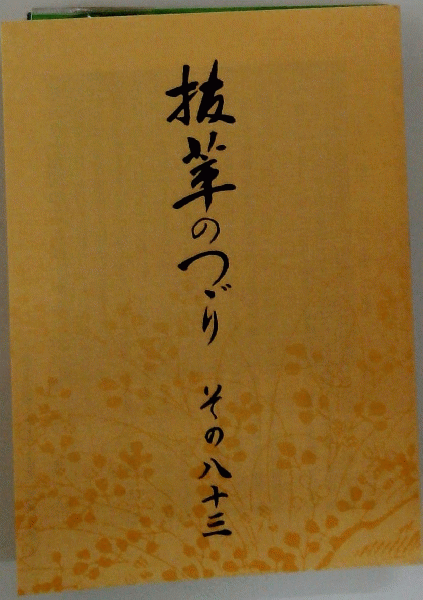 抜萃のつゞり その八十三